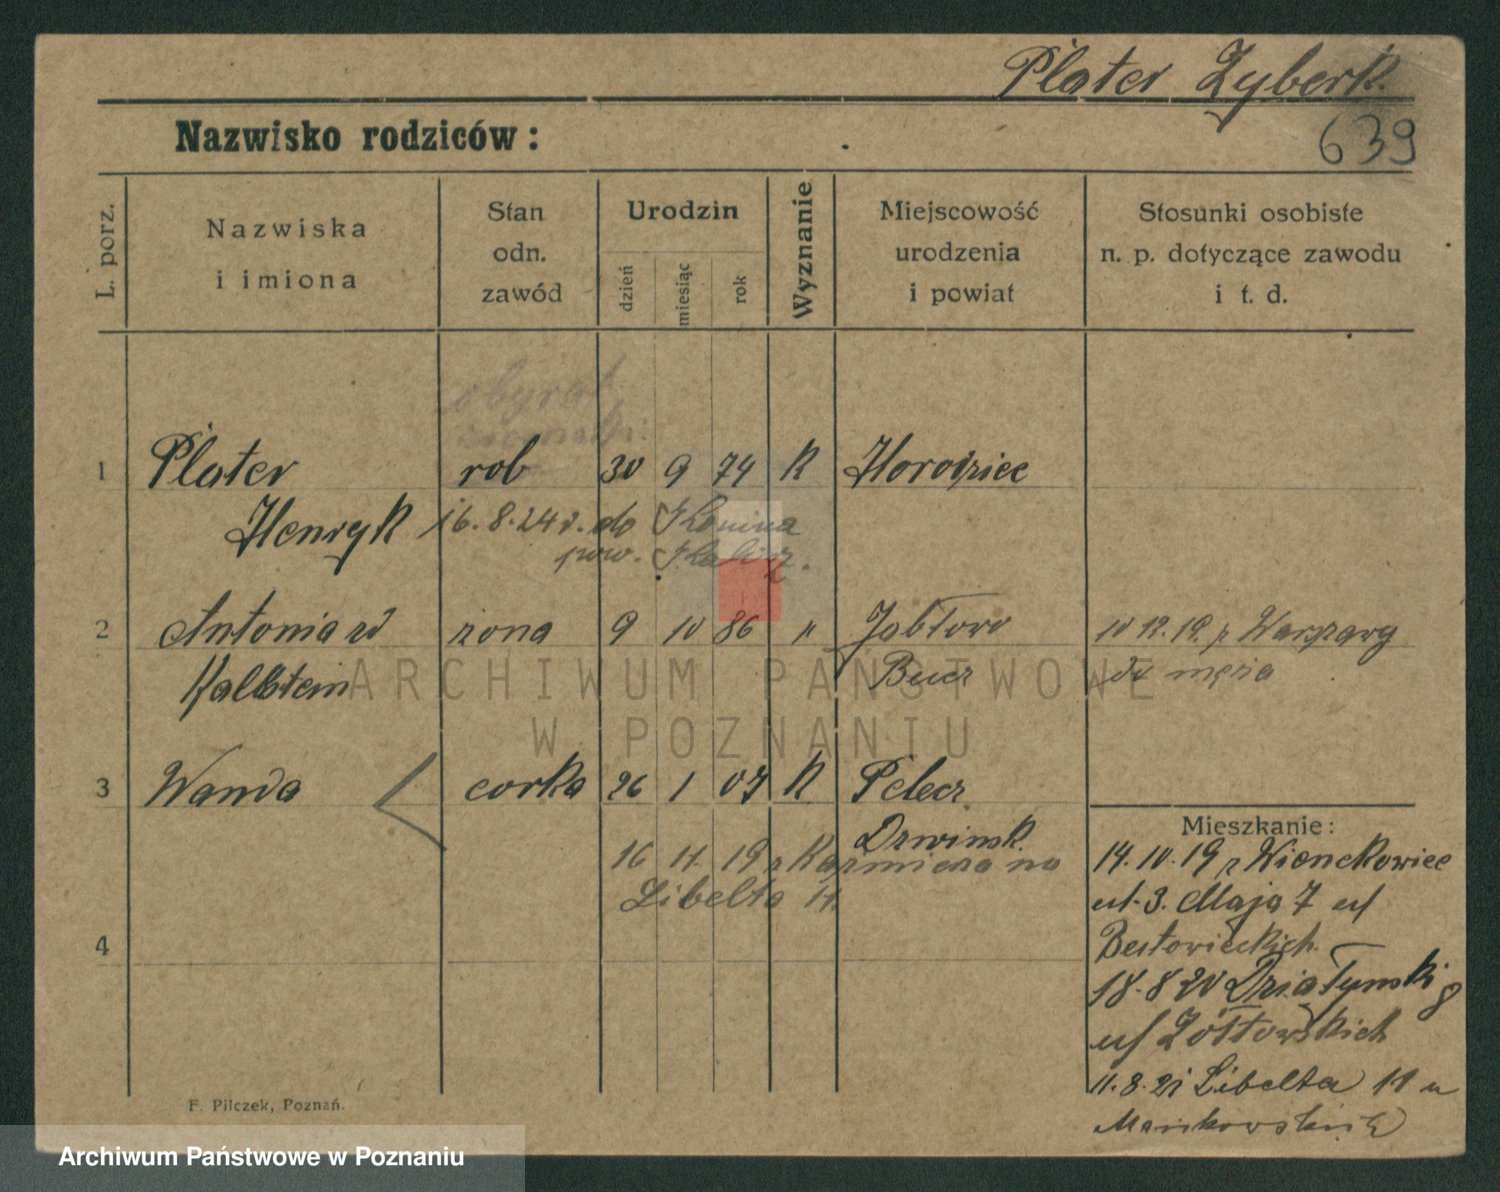 Plater Zyberk.
639
Nazwisko rodziców:
L. porz.
Nazwiska
i imiona
Stan
odn.
zawód
Urodzin
dzień
miesiąc
rok
Wyznanie
Miejscowość
urodzenia
i powiat
Stosunki osobiste
n. p. dotyczące zawodu
i t. d.
obywat
1 Plater rob 30 9 74 K Horodziec
Henryk 16.8.24 r. do Konina
pow. Kalisz.
2 Antonia zd żona 9 10 86 " Jabłowo 10 12.19. z Warszawy
Kalkstein do męża
3 Wanda corka 26 1 07 K Pelecz
Drwinsk.
16 11. 19 z Kazmierza na
Libelta 11.
4
Mieszkanie:
14.10.19 z Wienckowiec
ul. 3. Maja 7 u
18.8 20 Działynski 8
u Żółtowskich
11.8.21 Libelta 11 u
Mankowskich
F. Pilczek, Poznań.
ARCHIWUM PAŃSTWOWE
W POZNANIU
Archiwum Państwowe w Poznaniu